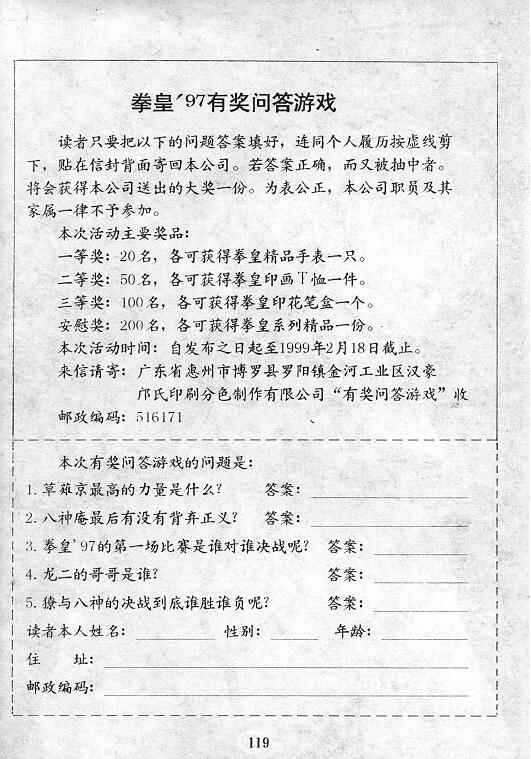 拳皇´97有奖问答游戏
读者只要把以下的问题答案填好，连同个人履历按虚线剪
下，贴在信封背面寄回本公司。若答案正确，而又被抽中者。
将会获得本公司送出的大奖一份。为表公正，本公司职员及其
家属一律不予参加。
本次活动主要奖品：
一等奖：20名，各可获得拳皇精品手表一只。
二等奖：50名，各可获得拳皇印画T恤一件。
三等奖：100名，各可获得拳皇印花笔盒一个。
安慰奖：200名，各可获得拳皇系列精品一份。
本次活动时间：自发布之日起至1999年2月18日截止。
来信请寄：广东省惠州市博罗县罗阳镇金河工业区汉豪
邝氏印刷分色制作有限公司“有奖问答游戏”收
邮政编码：516171
本次有奖问答游戏的问题是：
1. 草薙京最高的力量是什么？ 答案：
2. 八神庵最后有没有背弃正义？ 答案：
3. 拳皇’97的第一场比赛是谁对谁决战呢？ 答案：
4. 龙二的哥哥是谁？ 答案：
5. 獠与八神的决战到底谁胜谁负呢？ 答案：
读者本人姓名： 性别： 年龄：
住 址：
邮政编码：
119